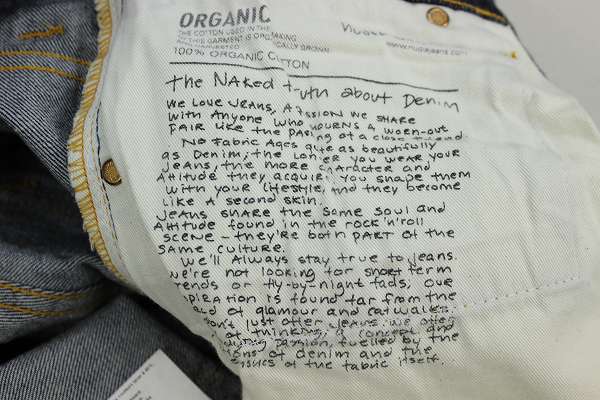 ORGANIC
THE COTTON USED IN THE
100% ORGANIC COTTON
www.nudiejeans.com
The Naked truth about Denim
We love jeans, A passion we share
with Anyone who mourns a worn-out
pair like the passing of a close friend
No fabric Ages quite as beautifully
as Denim, the longer you wear your
jeans, the more character and
Attitude they acquire. You shape them
with your lifestyle, and they become
like a second skin.
Jeans share the same soul and
Attitude found in the rock'n'roll
scene - they're both part of the
same culture.
We'll Always stay true to jeans.
We're not looking for short term
trends or fly-by-night fads, our
inspiration is found far from the
world of glamour and catwalks.
don't just offer jeans. We offer
of thinking, a concept and
passion, fuelled by the
of denim and the
of the fabric itself.